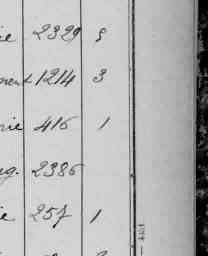 ie 2329 5
ment 1214 3
rie 416 1
ug. 2386
ie 257 1